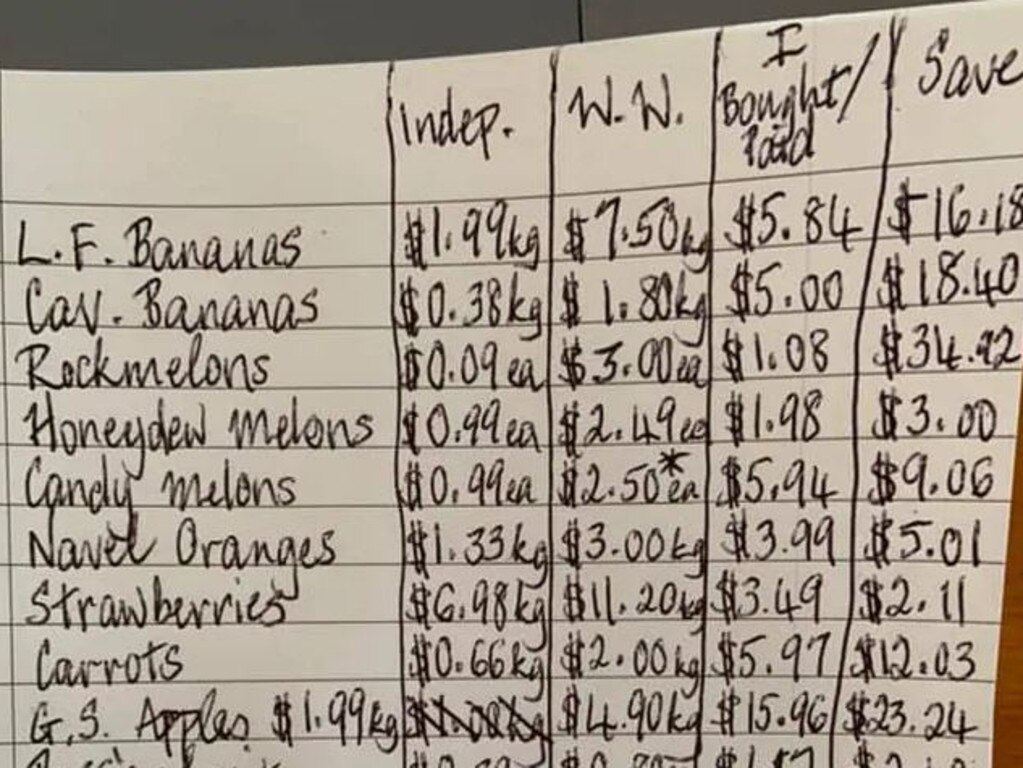 Indep. W. W. I Bought/Paid Save
L.F. Bananas $1.99kg $7.50kg $5.84 $16.18
Cav. Bananas $0.38kg $1.80kg $5.00 $18.40
Rockmelons $0.09ea $3.00ea $1.08 $34.92
Honeydew Melons $0.99ea $2.49ea $1.98 $3.00
Candy Melons $0.99ea $2.50*ea $5.94 $9.06
Navel Oranges $1.33kg $3.00kg $3.99 $5.01
Strawberries $6.98kg $11.20kg $3.49 $2.11
Carrots $0.66kg $2.00kg $5.97 $12.03
G.S. Apples $1.99kg $4.90kg $15.96 $23.24